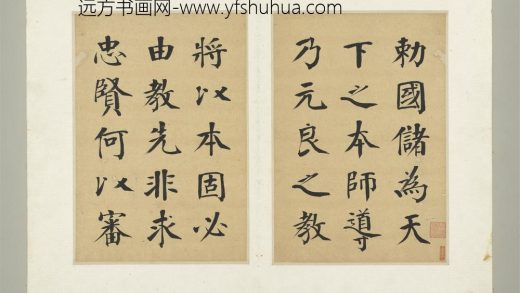 远方书画网-www.yfshuhua.com
勅國儲為天
下之本師導
乃元良之教
將以本固必
由教先非求
忠賢何以審